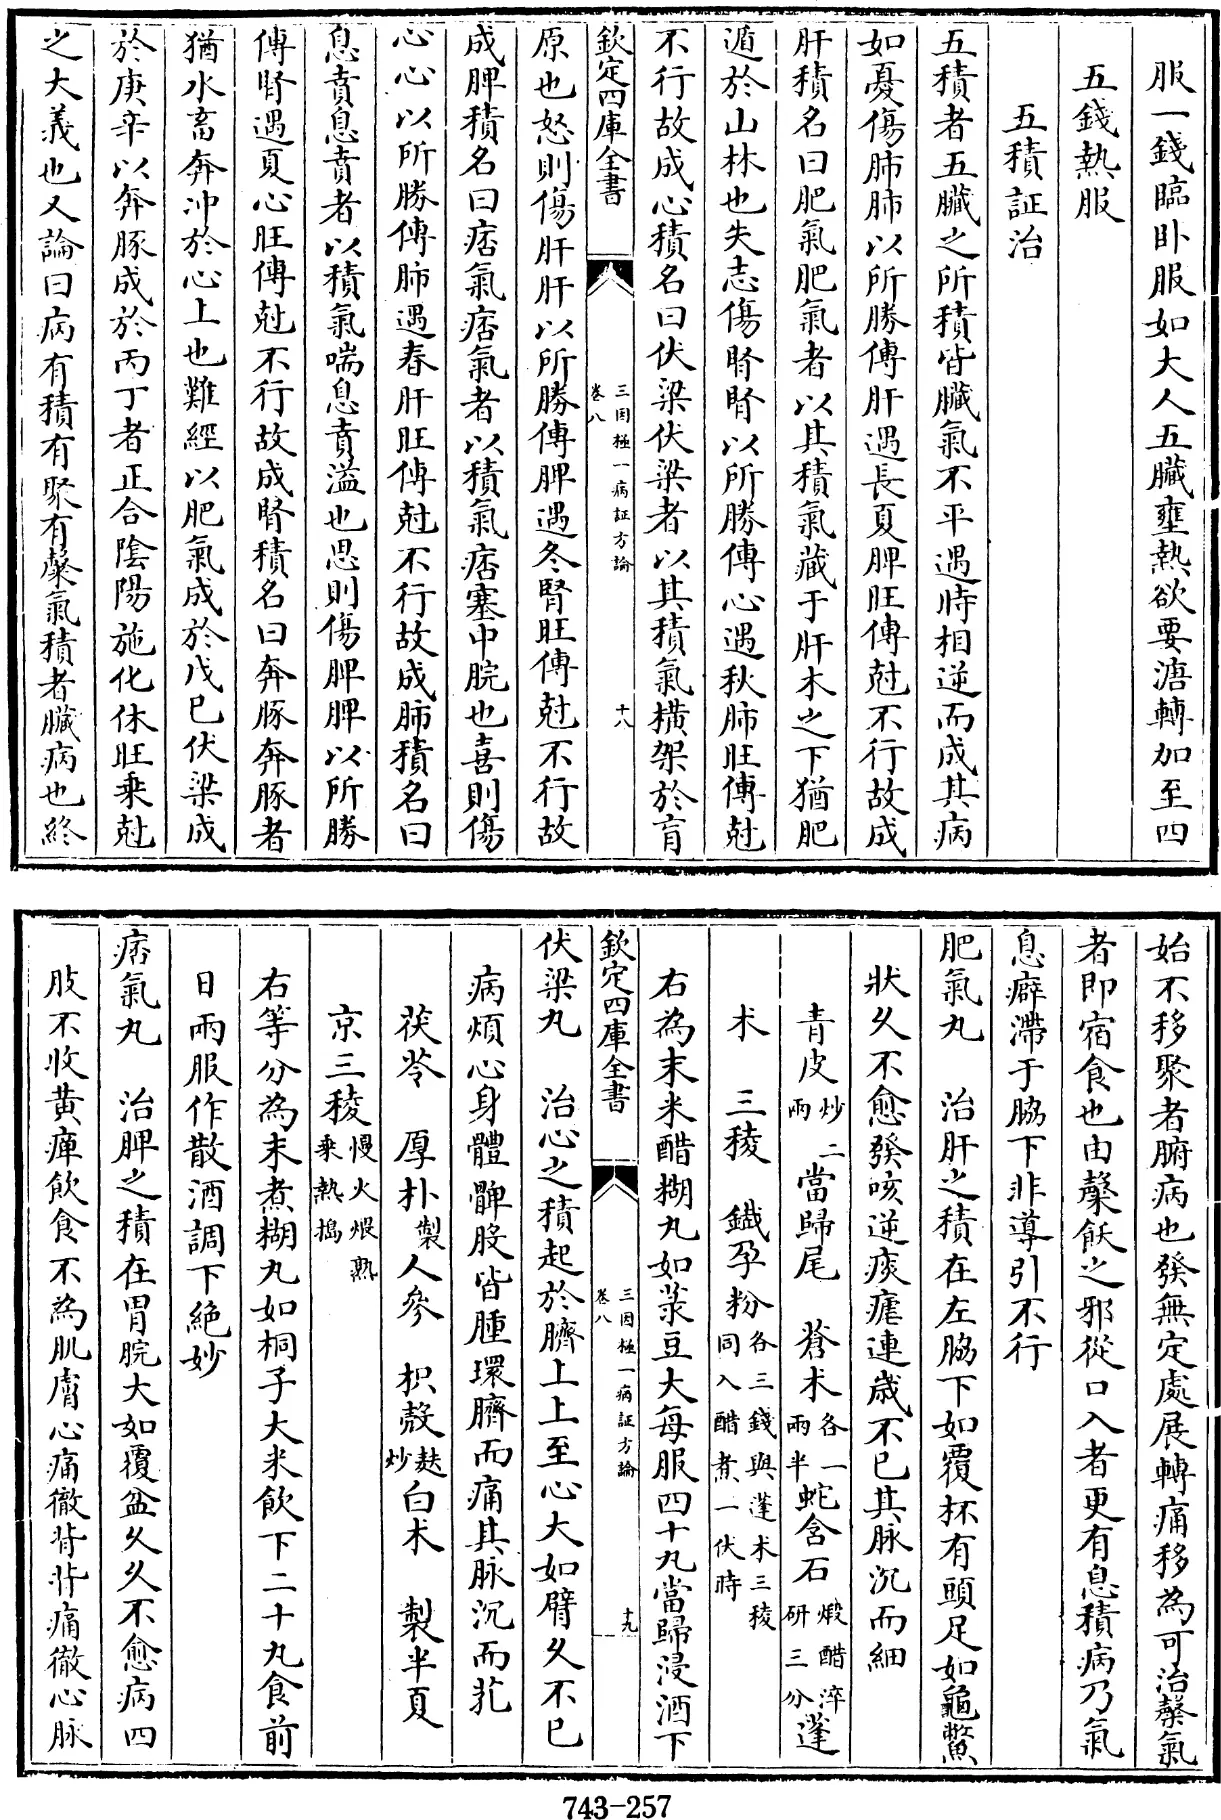 服一錢臨卧服如大人五臟壅熱欲要溏轉加至四
五錢熱服
五積証治
五積者五臟之所積皆臟氣不平遇時相逆而成其病
如憂傷肺肺以所勝傳肝遇長夏脾旺傳尅不行故成
肝積名曰肥氣肥氣者以其積氣藏于肝木之下猶肥
遁於山林也失志傷腎腎以所勝傳心遇秋肺旺傳尅
不行故成心積名曰伏梁伏梁者以其積氣横架於肓
欽定四庫全書
三因極一病証方論
卷八
十八
原也怒則傷肝肝以所勝傳脾遇冬腎旺傳尅不行故
成脾積名曰痞氣痞氣者以積氣痞塞中脘也喜則傷
心心以所勝傳肺遇春肝旺傳尅不行故成肺積名曰
息賁息賁者以積氣喘息賁溢也思則傷脾脾以所勝
傳腎遇夏心旺傳尅不行故成腎積名曰奔豚奔豚者
猶水畜奔冲於心上也難經以肥氣成於戊巳伏梁成
於庚辛以奔豚成於丙丁者正合陰陽施化休旺乗尅
之大義也又論曰病有積有聚有䅽氣積者臟病也終
始不移聚者腑病也發無定處展轉痛移為可治䅽氣
者即宿食也由䅽飫之邪從口入者更有息積病乃氣
息癖滯于脇下非導引不行
肥氣丸 治肝之積在左脇下如覆杯有頭足如龜鱉
狀久不愈發咳逆痰瘧連歲不已其脉沉而細
青皮炒二兩 當歸尾 蒼术各一兩半 蛇含石煅醋淬研三分 蓬
术 三稜 鐵孕粉各三錢與蓬术三稜同入醋煮一伏時
右為末米醋糊丸如菉豆大每服四十丸當歸浸酒下
欽定四庫全書
三因極一病証方論
卷八
十九
伏梁丸 治心之積起於臍上上至心大如臂久不已
病煩心身體髀股皆腫環臍而痛其脉沉而芤
茯苓 厚朴製 人參 枳殼麩炒 白术 製半夏
京三稜慢火煨熟乗熱搗
右等分為末煮糊丸如桐子大米飲下二十丸食前
日兩服作散酒調下絶妙
痞氣丸 治脾之積在胃脘大如覆盆久久不愈病四
肢不收黄疸飲食不為肌膚心痛徹背背痛徹心脉
743-257